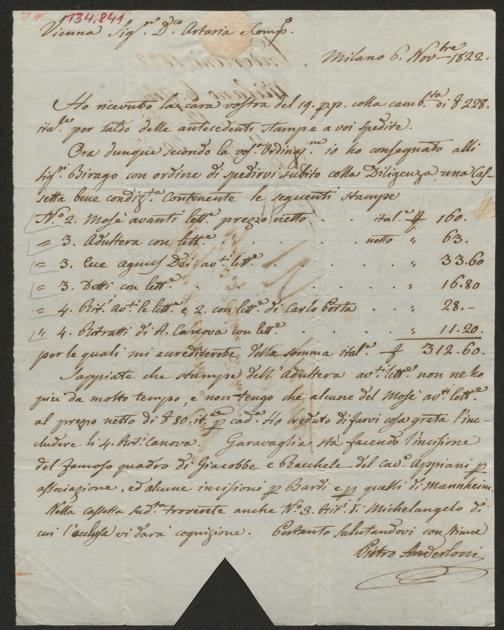 J.N. 134.841
Vienna Sigri Dco Artaria e Compi.
Milano 6. Novbre 1822.
Ho ricevuto la cara vostra del 19. p.p. colla cambta di £ 228.
ital. per saldo delle antecedenti stampe a voi spedite.
Ora dunque secondo la vosa Ordinazne io ho consegnato alli
Sigri Birago con ordine di spedirvi subito colla Diligenza una Cas
setta bene condizta contenente le seguenti stampe
No 2. Mosè avanti letta prezzo netto . . . ital.e £ 160.
= 3. Adultera con letta . . . netto " 63.
= 3. Ecce agnus Dei avti letta . . . " 33.60
= 3. Detti con letta . . . " 16.80
= 4. Riti avti le letta e 2. con letta di Carlo Porta . . " 28.-
" 4. Ritratti di A. Canova con letta . . . " 11.20.
per le quali mi accrediterete della somma itale £ 312.60.
Sappiate che stampe dell'Adultera avti letta non ne ho
più da molto tempo, e non tengo che alcune del Mosè avti letta
al prezzo netto di £ 80. it. p cade. Ho creduto di farvi cosa grata l'inc-
ludere li 4. Riti Canova. Garavaglia sta facendo l'incisione
del famoso quadro di Giacobbe e Rachele del cavr Appiani p
associazione, ed alcune incisioni p Bardi e p quelli di Mannheim.
Nella cassetta sudta troverete anche No 3. Riti di Michelangelo di
cui l'acclusa vi darà cognizione. Pertanto salutandovi con stima
Pietro Anderloni